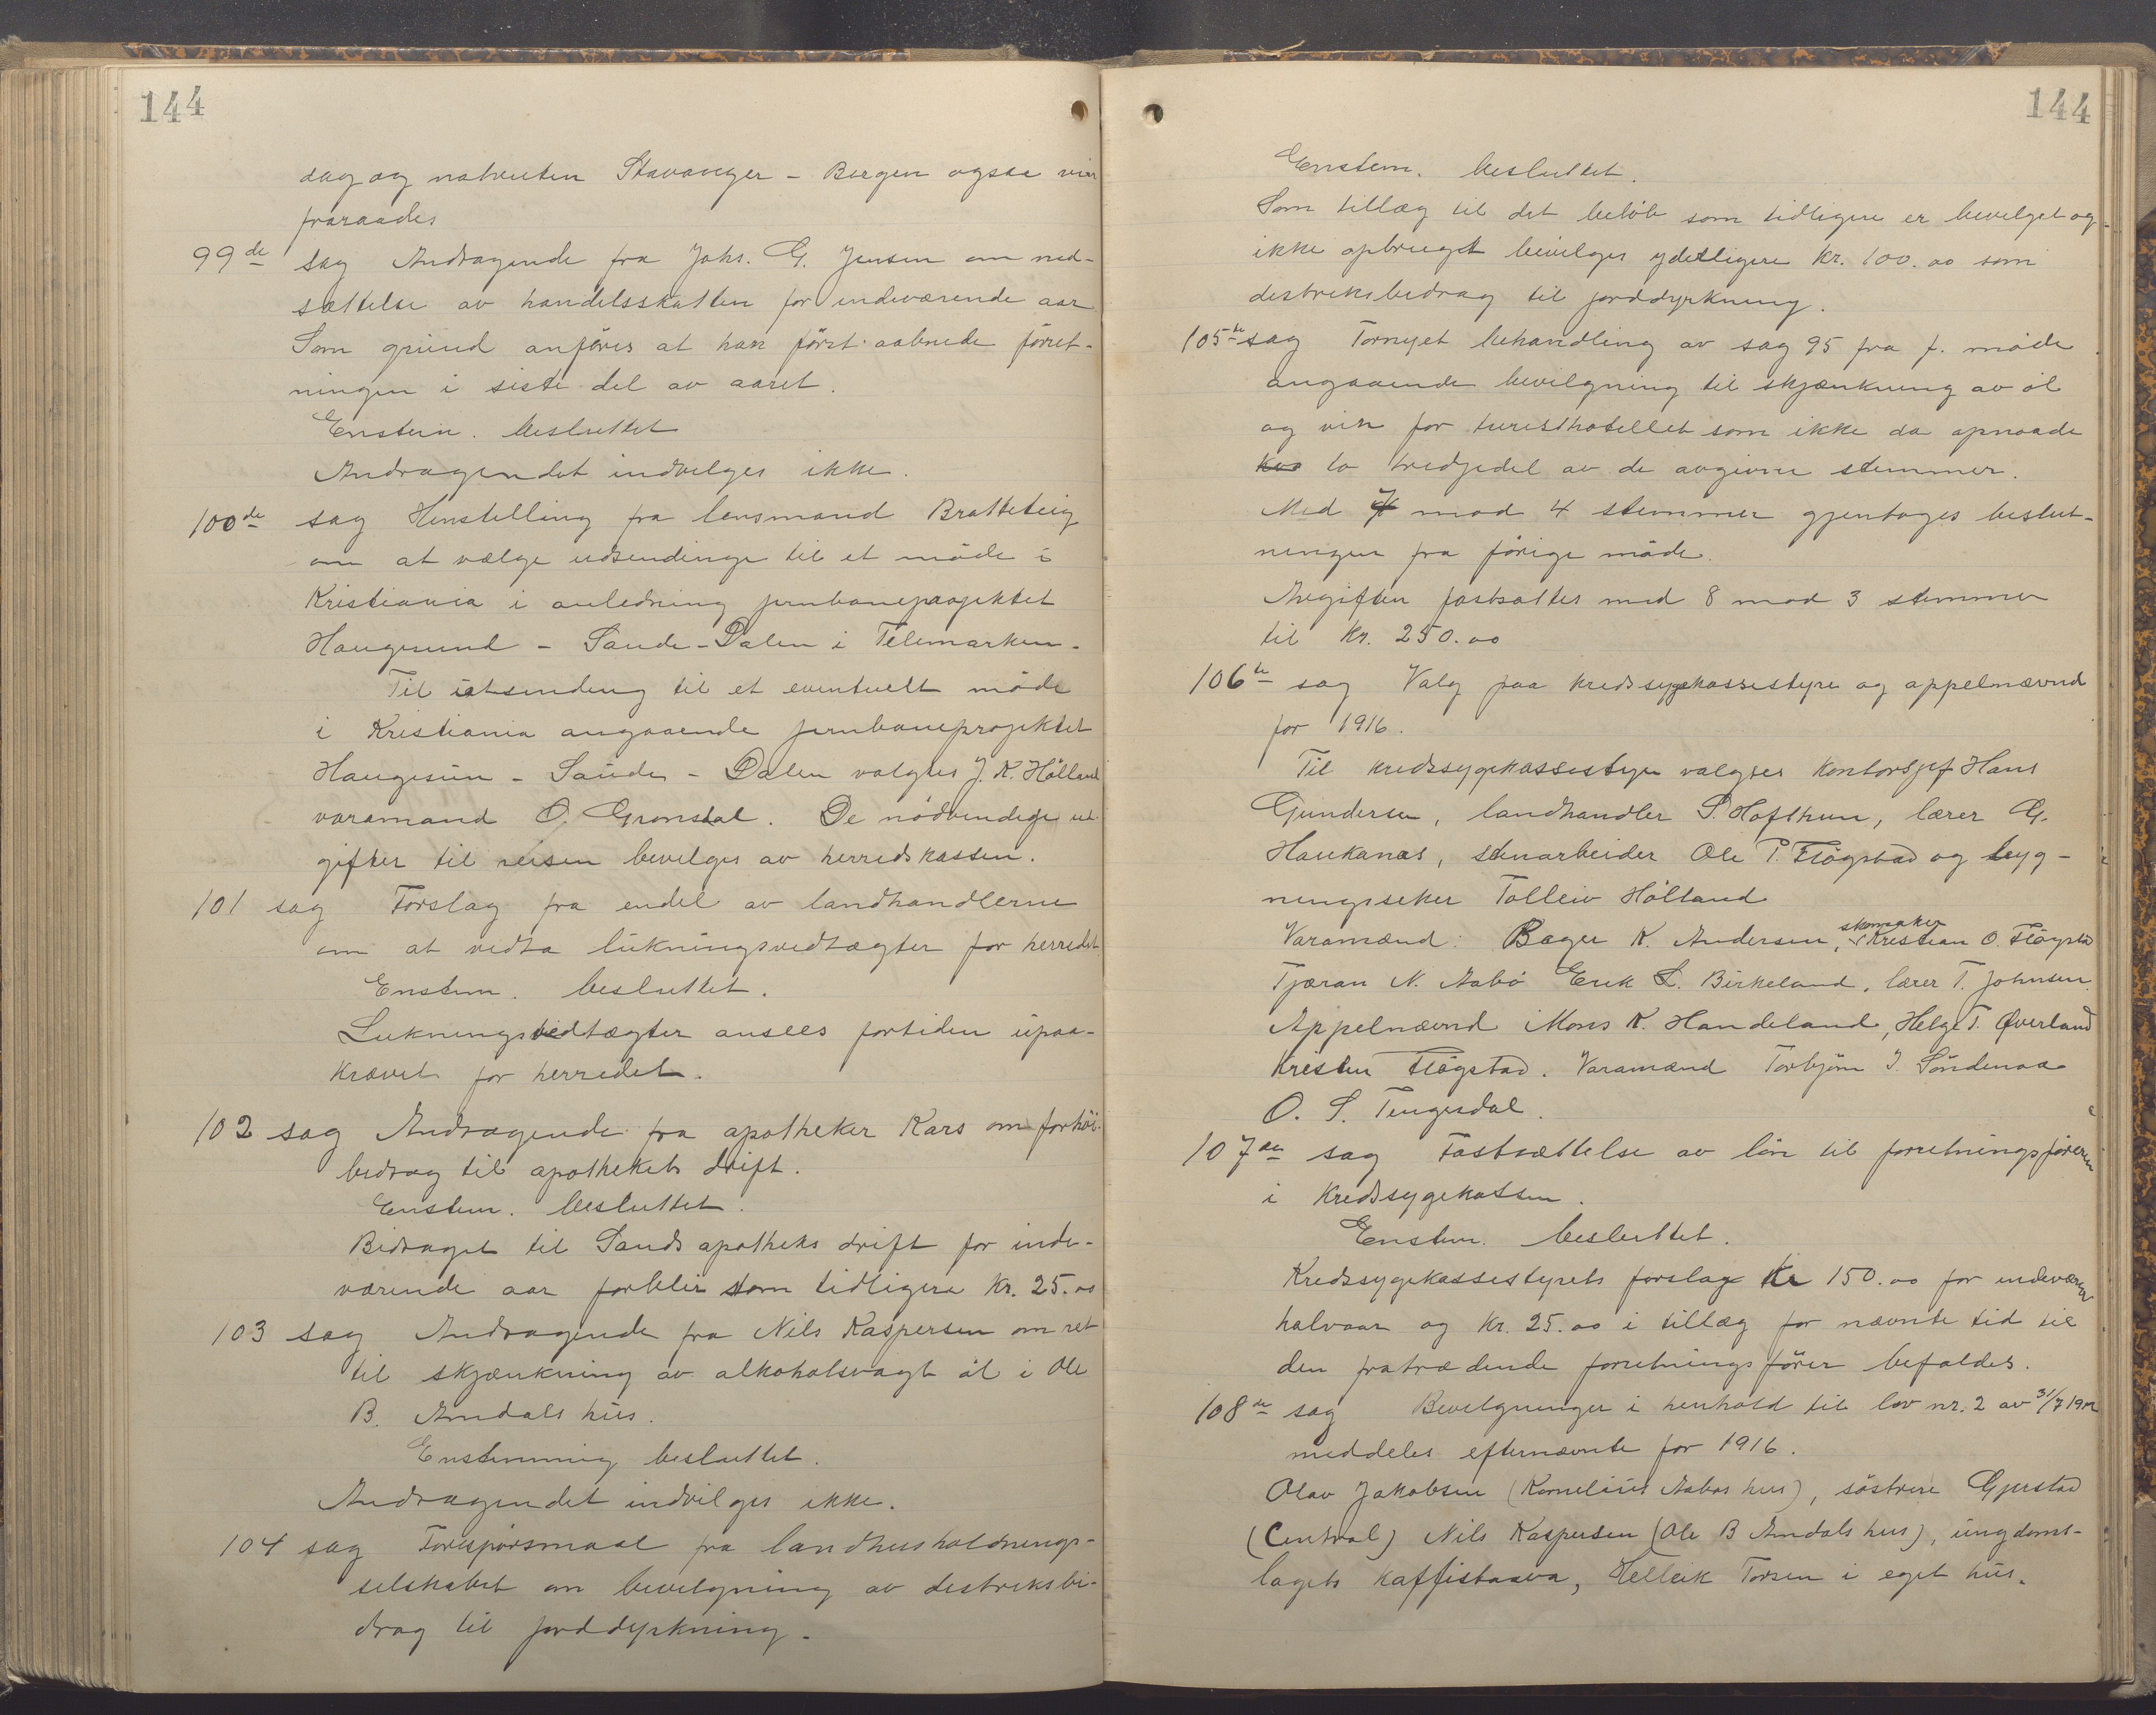 144
dag og natruten Stavanger - Bergen ogsaa vin
fraraades
99de sag Andragende fra Johs. G. Jensen om ned-
sættelse av handelsskatten for indeværende aar
Som grund anföres at han först aabnede forret-
ningen i siste del av aaret.
Enstem. besluttet
Andragendet indvilges ikke.
100de sag Henstilling fra lensmand Bratteteig
om at vælge udsendinge til et möde i
Kristiania i anledning jernbaneprojektet
Haugesund - Saude - Dalen i Telemarken.
Til utsending til et eventuelt möde
i Kristiania angaaende jernbaneprojektet
Haugesun - Saude - Dalen valgtes J. K. Hölland
varamand O. Gronstal. De nödvendige ut-
gifter til reisen bevilges av herredskassen.
101 sag Forslag fra endel av landhandlerne
om at vedta lukningsvedtægter for herredet.
Enstem. besluttet.
Lukningsvedtægter ansees fortiden upaa-
krævet for herredet.
102 sag Andragende fra apotheker Kars om forhöi.
bedrag til apothekets drift.
Enstem. besluttet.
Bidraget til Sands apotheks drift for inde-
værende aar forblir som tidligere Kr. 25.00
103 sag Andragende fra Nils Kaspersen om ret
til skjænkning av alkoholsvagt öl i Ole
B. Amdals hus.
Enstemmig besluttet.
Andragendet indvilges ikke.
104 sag Forespörsmaal fra landhusholdnings-
selskabet om bevilgning av destriksbi-
drag til jorddyrkning.
144
Enstem. besluttet.
Som tillæg til det belöb som tidligere er bevilget og
ikke opbrugt bevilges yderligere Kr. 100.00 som
destriksbedrag til jorddyrkning.
105te sag Fornyet behandling av sag 95 fra f. möde
angaaende bevilgning til skjænkning av öl
og vin for turisthotellet som ikke da opnaade
to tredjedel av de avgivne stemmer.
Med 7 mod 4 stemmer gjentages beslut-
ningen fra forige möde.
Avgiften fastsattes med 8 mod 3 stemmer
til Kr. 250.00
106te sag Valg paa kredssygekassestyre og appelnævnd
for 1916.
Til kredssygekassestyre valgtes Kontorsjef Hans
Gundersen, landhandler S. Hofthun, lærer G.
Haukanæs, stenarbeider Ole T. Flögstad og byg-
ningseker Tolleiv Hölland
Varamænd: Bager K. Andersen, skomaker Kristian O. Flögstad
Tjæran N. Aabö Erik L. Birkeland, lærer T. Johnsen.
Appelnævnd Mons K. Handeland, Helge T. Øverland
Kristen Flögstad. Varamænd Torbjörn I. Söndenaa
O. S. Tengesdal.
107de sag Fastsættelse av lön til forretningsföreren
i Kredssygekassen.
Enstem. besluttet.
Kredssygekassestyrets forslag Kr 150.00 for indeværen
halvaar og Kr. 25.00 i tillæg for nævnte tid til
den fratrædende forretningsförer befaldes.
108de sag Bevilgninger i henhold til lov nr. 2 av 31/7 19
meddeles efternævnte for 1916.
Olav Jakobsen (Kornelius Aabös hus), söstrene Gjerstad
(Central) Nils Kaspersen (Ole B Amdals hus), ungdoms-
lagets kaffistaava, Helleik Torsen i eget hus.